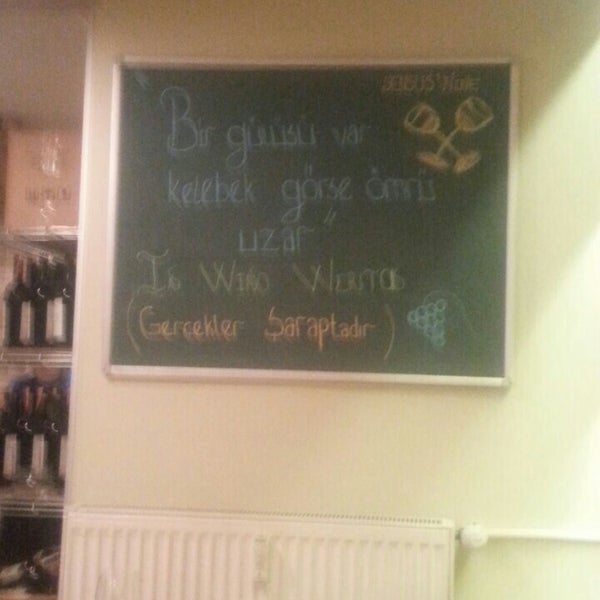 SENSUS' WINE
Bir gülüşü var
kelebek görse ömrü
uzar"
In Wino Weritas
(Gerçekler Şaraptadır)